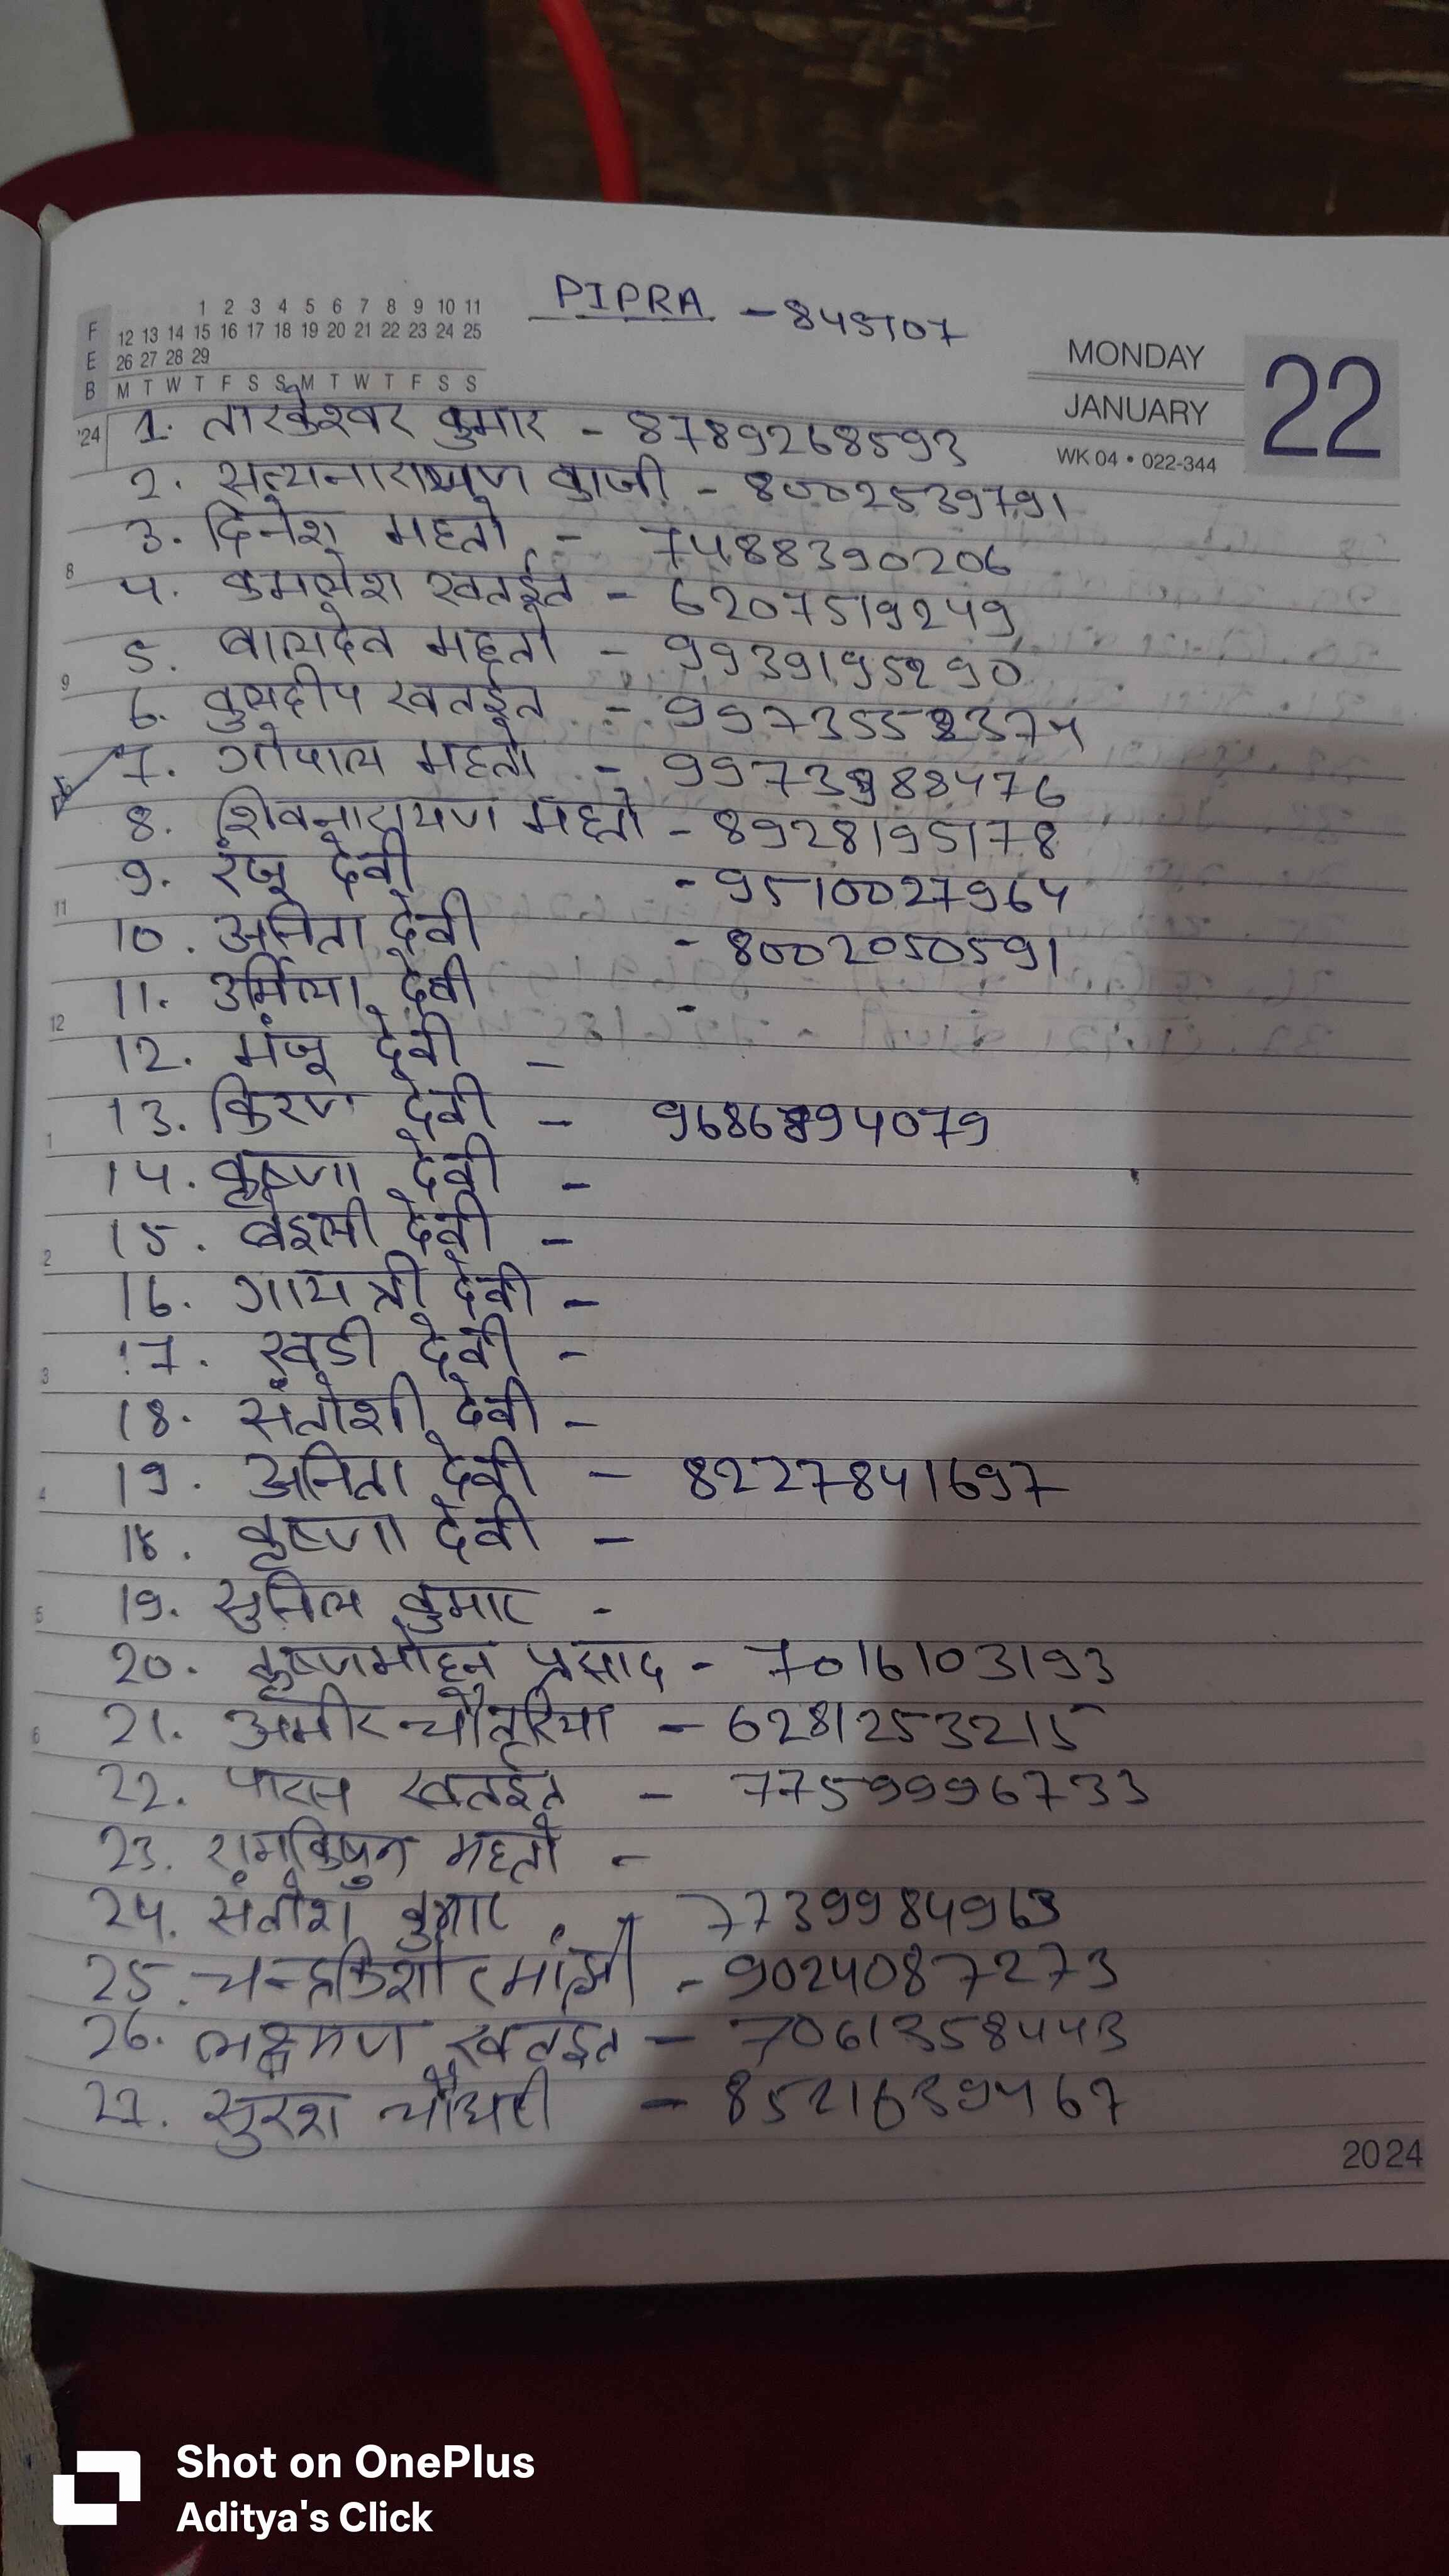 PIPRA - 845107
F E B '24
1 2 3 4 5 6 7 8 9 10 11
12 13 14 15 16 17 18 19 20 21 22 23 24 25
26 27 28 29
M T W T F S S M T W T F S S
MONDAY
JANUARY
22
WK 04 • 022-344
1. तारकेश्वर कुमार - 8789268593
2. सत्यनारायण काजी - 8002539791
3. दिनेश महतो - 7488390206
8
4. कमलेश खतईत - 6207519249
5. बालदेव महतो - 9939195290
9
6. कुलदीप खतईत - 
7. गोपाल महतो - 9973988476
8. शिवनारायण महतो - 8928195178
9. रंजू देवी - 9510027964
11
10. अनिता देवी - 8002050591
11. उर्मिला देवी -
12
12. मंजू देवी -
13. किरण देवी - 9686894079
1
14. कृष्णा देवी -
15. देवी -
2
16. गायत्री देवी -
17. देवी -
3
18. संतोशी देवी -
19. अनिता देवी - 8227841697
4
18. कृष्णा देवी -
19. सुनिल कुमार -
5
20. कृष्णमोहन प्रसाद - 7016103193
21. अमीर चौतरिया - 6281253215
6
22. पारस खतईत - 7759996733
23. रामकिषुन महतो -
24. संतोश कुमार - 7739984963
25. चन्द्रकिशोर मांझी - 9024087273
26. लक्ष्मण खतईत - 7061358443
27. सुरेश चौधरी - 8521639467
2024
Shot on OnePlus
Aditya's Click